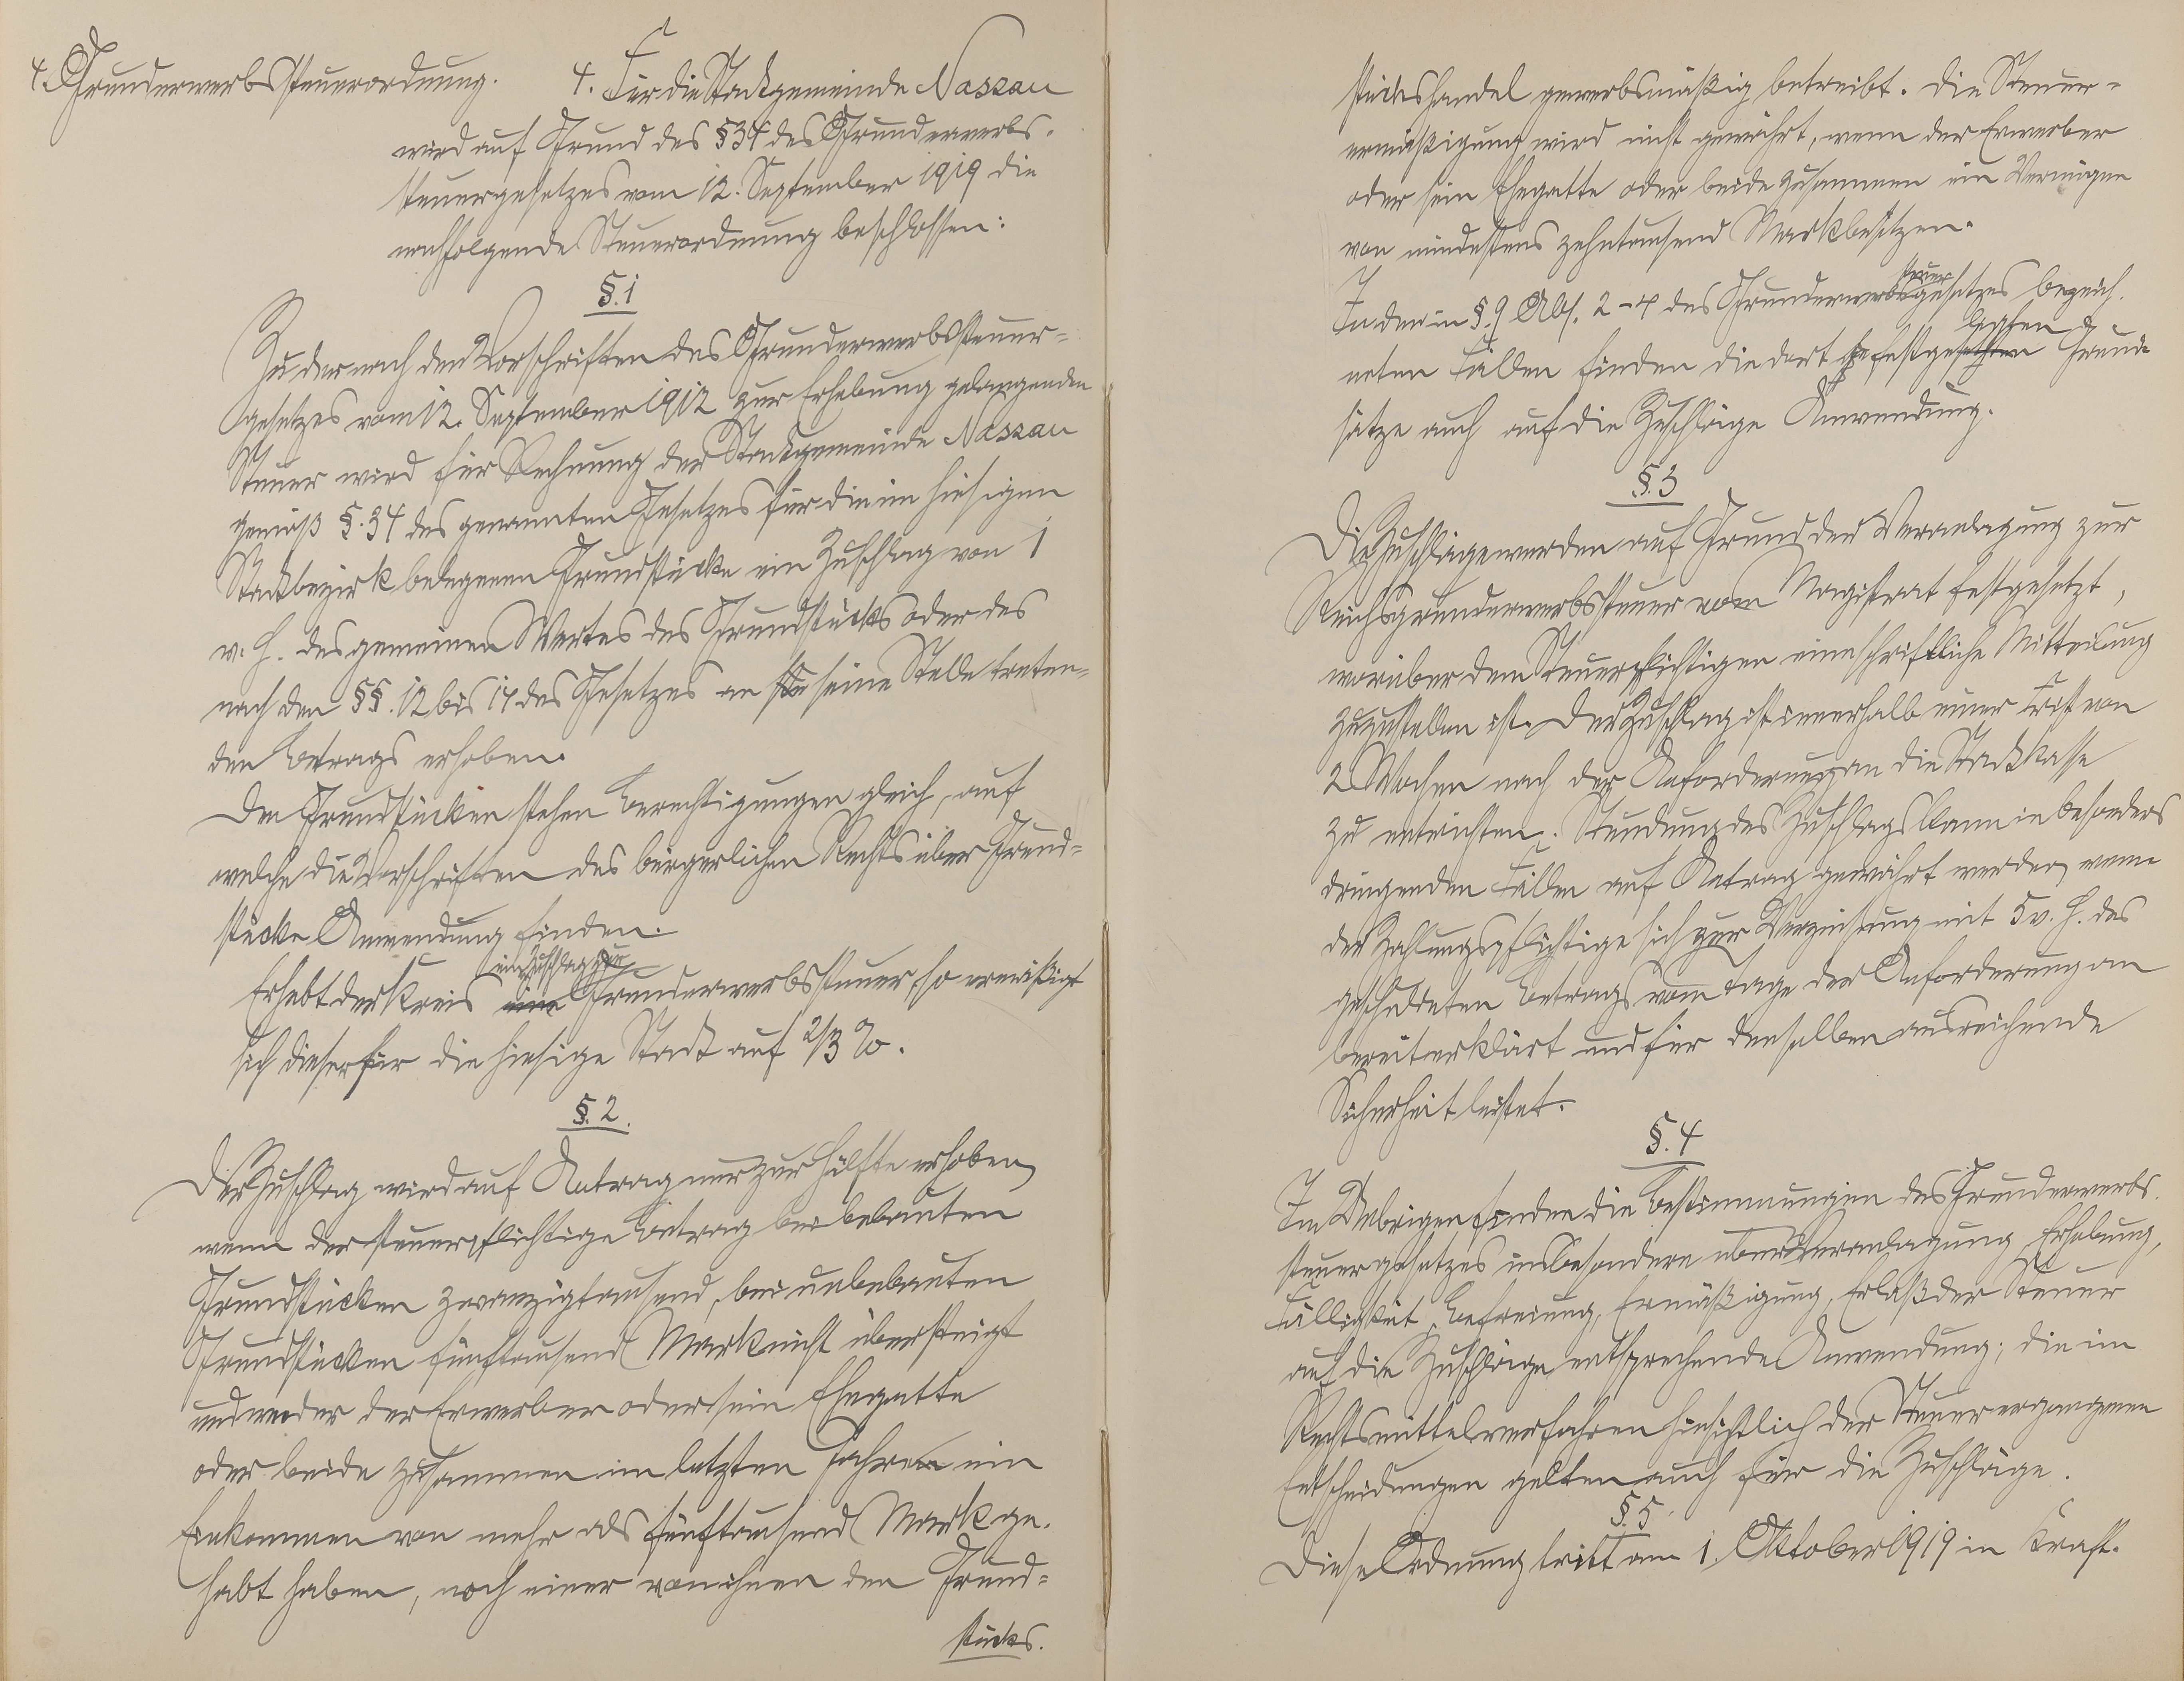 4. Grunderwerbssteuerordnung.
4. Für die Stadtgemeinde Nassau
wird auf Grund des § 34 des Grunderwerbs-
steuergesetzes vom 12. September 1919 die
nachfolgende Steuerordnung beschlossen:
§. 1
Zu der nach den Vorschriften des Grunderwerbssteuer-
gesetzes vom 12. September 1912 zur Erhebung gelangenden
Steuer wird für Rechnung der Stadtgemeinde Nassau
gemäß §. 34 des genannten Gesetzes für die im hiesigen
Stadtbezirk belegenen Grundstücke ein Zuschlag von 1
v. H. des gemeinen Wertes des Grundstücks oder des
nach den §§. 12 bis 14 des Gesetzes an seine Stelle treten-
den Betrags erhoben.
Den Grundstücken stehen Berechtigungen gleich, auf
welche die Vorschriften des bürgerlichen Rechts über Grund-
stücke Anwendung finden.
ein Zuschlag zur
Erhebt der Kreis eine Grunderwerbssteuer, so ermäßigt
sich dieser für die hiesige Stadt auf 2/3 %.
§. 2.
Der Zuschlag wird auf Antrag nur zur Hälfte erhoben,
wenn der steuerpflichtige Betrag bei bebauten
Grundstücken zwanzigtausend, bei unbebauten
Grundstücken fünftausend Mark nicht übersteigt
und weder der Erwerber oder sein Ehegatte
oder beide zusammen im letzten Jahre ein
Einkommen von mehr als fünftausend Mark ge-
habt haben, noch einer von ihnen den Grund-
stücks.
stückshandel gewerbsmäßig betreibt. Die Steuer-
ermäßigung wird nicht gewährt, wenn der Erwerber
oder sein Ehegatte oder beide zusammen ein Vermögen
von mindestens zehntausend Mark besitzen.
steuer
In den in §. 9 Abs. 2-4 des Grunderwerbsgesetzes bezeich-
legten
neten Fällen finden die dort festgesetzten Grund-
sätze auch auf die Zuschläge Anwendung.
§. 3
Die Zuschläge werden auf Grund der Veranlagung zur
Reichsgrunderwerbssteuer vom Magistrat festgesetzt,
worüber dem Steuerpflichtigen eine schriftliche Mitteilung
zuzustellen ist. Der Zuschlag ist innerhalb einer Frist von
2 Wochen nach der Anforderung an die Stadtkasse
zu entrichten. Stundung des Zuschlags kann in besonders
dringenden Fällen auf Antrag gewährt werden, wenn
der Zahlungspflichtige sich zur Verzinsung mit 5 v. H. des
geschuldeten Betrags vom Tage der Anforderung an
bereit erklärt und für denselben ausreichende
Sicherheit leistet.
§. 4
Im Uebrigen finden die Bestimmungen des Grunderwerbs-
steuergesetzes insbesondere über Veranlagung, Erhebung,
Fälligkeit, Befreiung, Ermäßigung, Erlaß der Steuer
auf die Zuschläge entsprechende Anwendung; die im
Rechtsmittelverfahren hinsichtlich der Steuer ergangenen
Entscheidungen gelten auch für die Zuschläge.
§. 5.
Diese Ordnung tritt am 1. Oktober 1919 in Kraft.